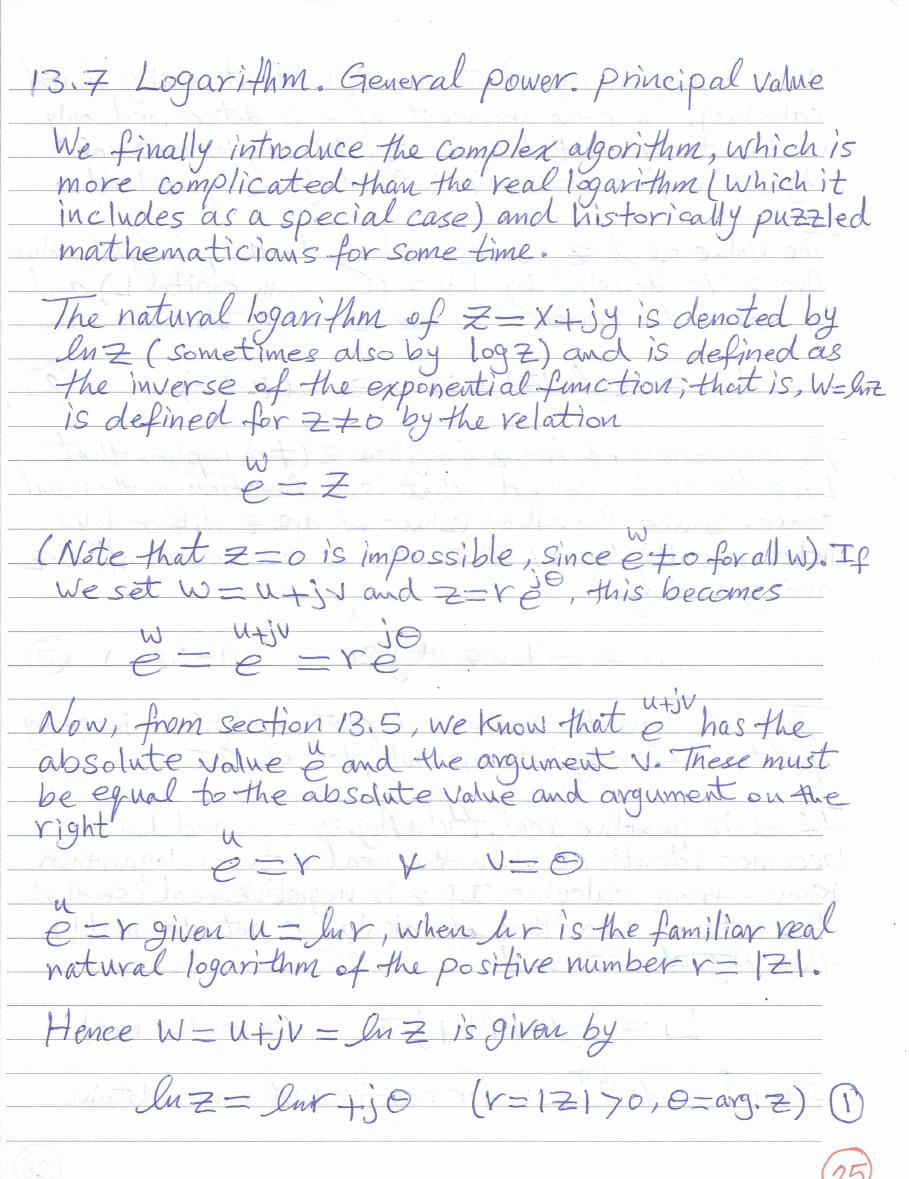 13.7 Logarithm. General power. Principal value
We finally introduce the complex algorithm, which is
more complicated than the real logarithm (which it
includes as a special case) and historically puzzled
mathematicians for some time.
The natural logarithm of z=x+jy is denoted by
ln z (sometimes also by log z) and is defined as
the inverse of the exponential function; that is, w=ln z
is defined for z≠0 by the relation
e^w = z
(Note that z=0 is impossible, since e^w≠0 for all w). If
we set w=u+jv and z=r e^jθ, this becomes
e^w = e^u+jv = r e^jθ
Now, from section 13.5, we know that e^u+jv has the
absolute value e^u and the argument v. These must
be equal to the absolute value and argument on the
right
e^u = r & v = θ
e^u = r given u = ln r, when ln r is the familiar real
natural logarithm of the positive number r = |z|.
Hence w = u+jv = ln z is given by
ln z = ln r + jθ (r=|z|>0, θ=arg. z) 1
25